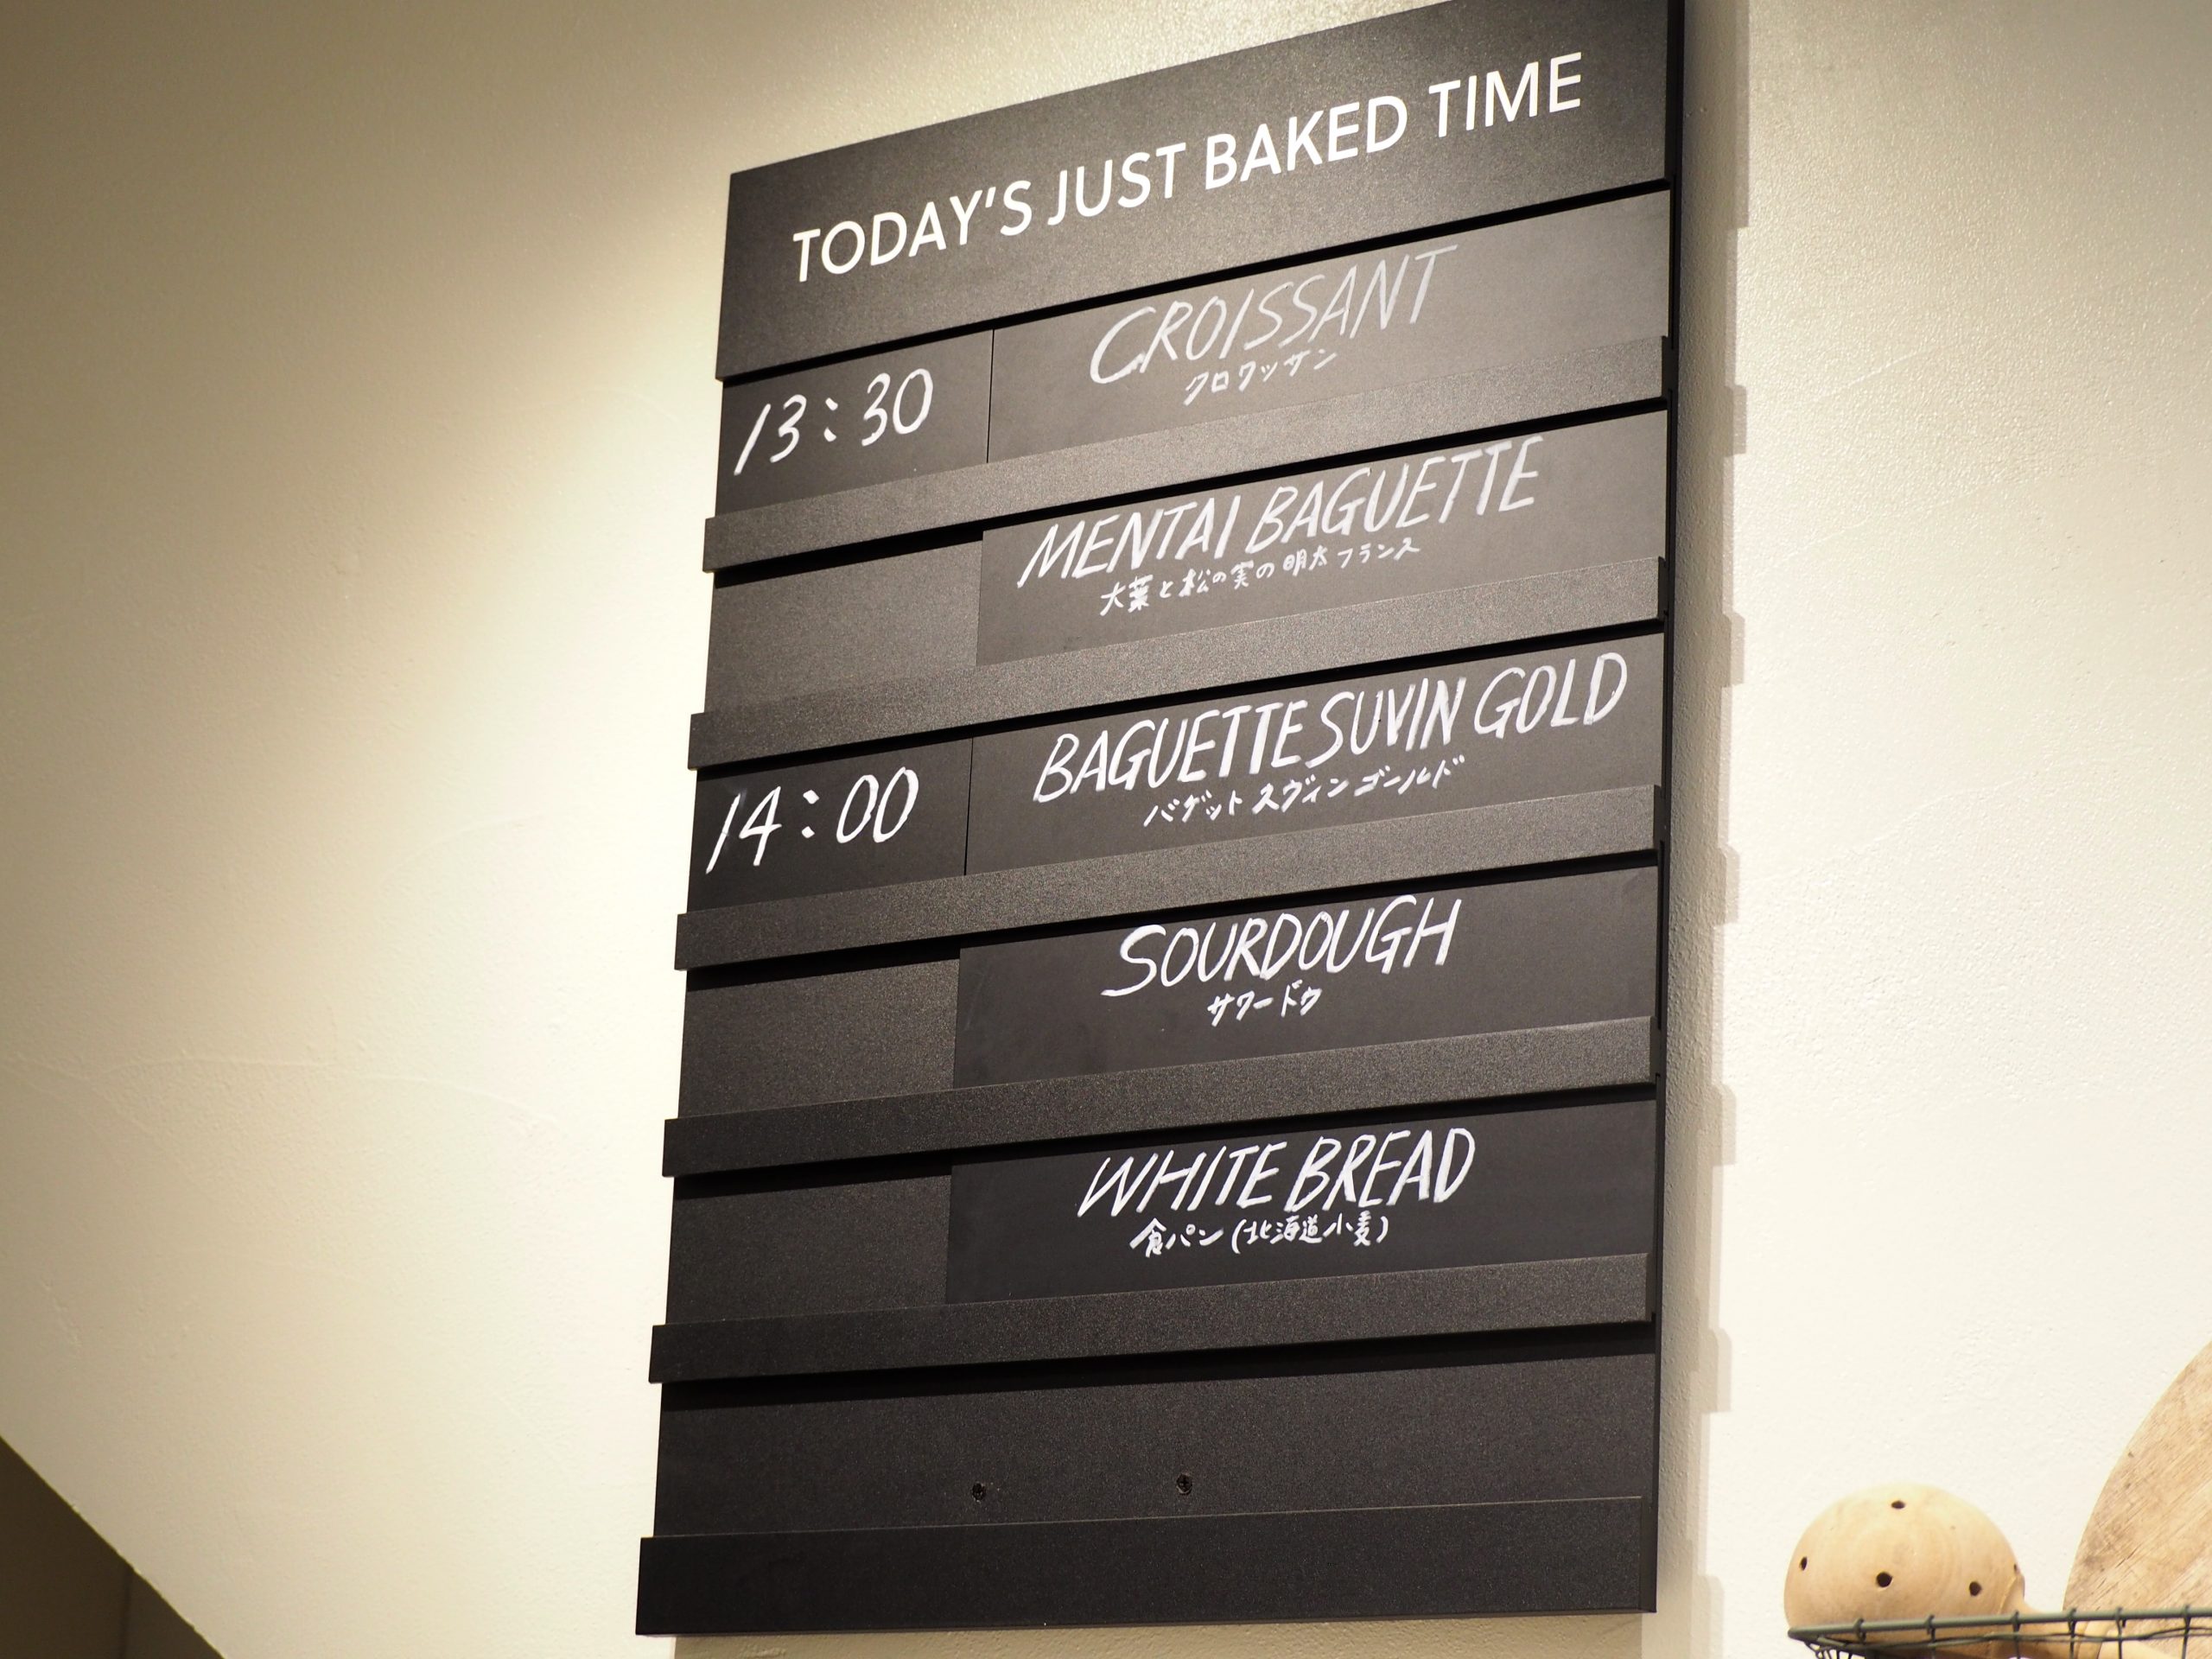 TODAY'S JUST BAKED TIME
13:30 CROISSANT
クロワッサン
MENTAI BAGUETTE
大葉と松の実の明太フランス
14:00 BAGUETTE SUVIN GOLD
バゲット スヴィン ゴールド
SOURDOUGH
サワードゥ
WHITE BREAD
食パン(北海道小麦)